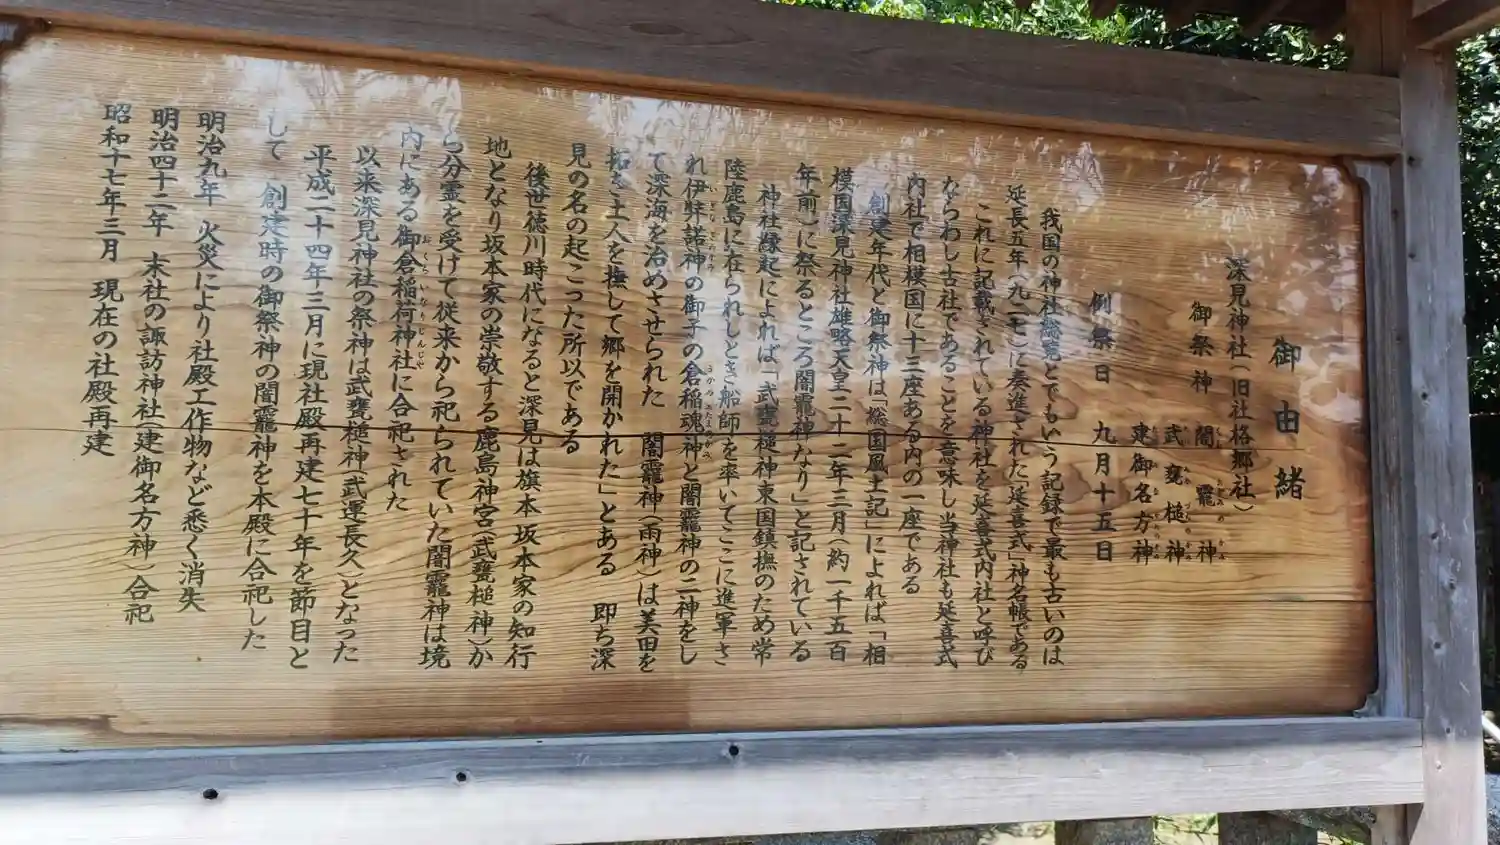 御由緒
深見神社(旧社格郷社)
御祭神 闇龗神
武甕槌神
建御名方神
例祭日 九月十五日
我国の神社総覧とでもいう記録で最も古いのは
延長五年(九二七)に奏進された「延喜式」神名帳である
これに記載されている神社を延喜式内社と呼び
ならわし古社であることを意味し当神社も延喜式
内社で相模国に十三座ある内の一座である
創建年代と御祭神は「総国風土記」によれば「相
模国深見神社雄略天皇二十二年三月(約一千五百
年前)に祭るところ闇龗神なり」と記されている
神社縁起によれば「武甕槌神東国鎮撫のため常
陸鹿島に在られしとき船師を率いてここに進軍さ
れ伊弉諾神の御子の倉稲魂神と闇龗神の二神をし
て深海を治めさせられた 闇龗神(雨神)は美田を
拓き土人を撫して郷を開かれた」とある 即ち深
見の名の起こった所以である
後世徳川時代になると深見は旗本坂本家の知行
地となり坂本家の崇敬する鹿島神宮(武甕槌神)か
ら分霊を受けて従来から祀られていた闇龗神は境
内にある御倉稲荷神社に合祀された
以来深見神社の祭神は武甕槌神(武運長久)となった
平成二十四年三月に現社殿再建七十年を節目と
して 創建時の御祭神の闇龗神を本殿に合祀した
明治九年 火災により社殿工作物など悉く消失
明治四十二年 末社の諏訪神社(建御名方神)合祀
昭和十七年三月 現在の社殿再建